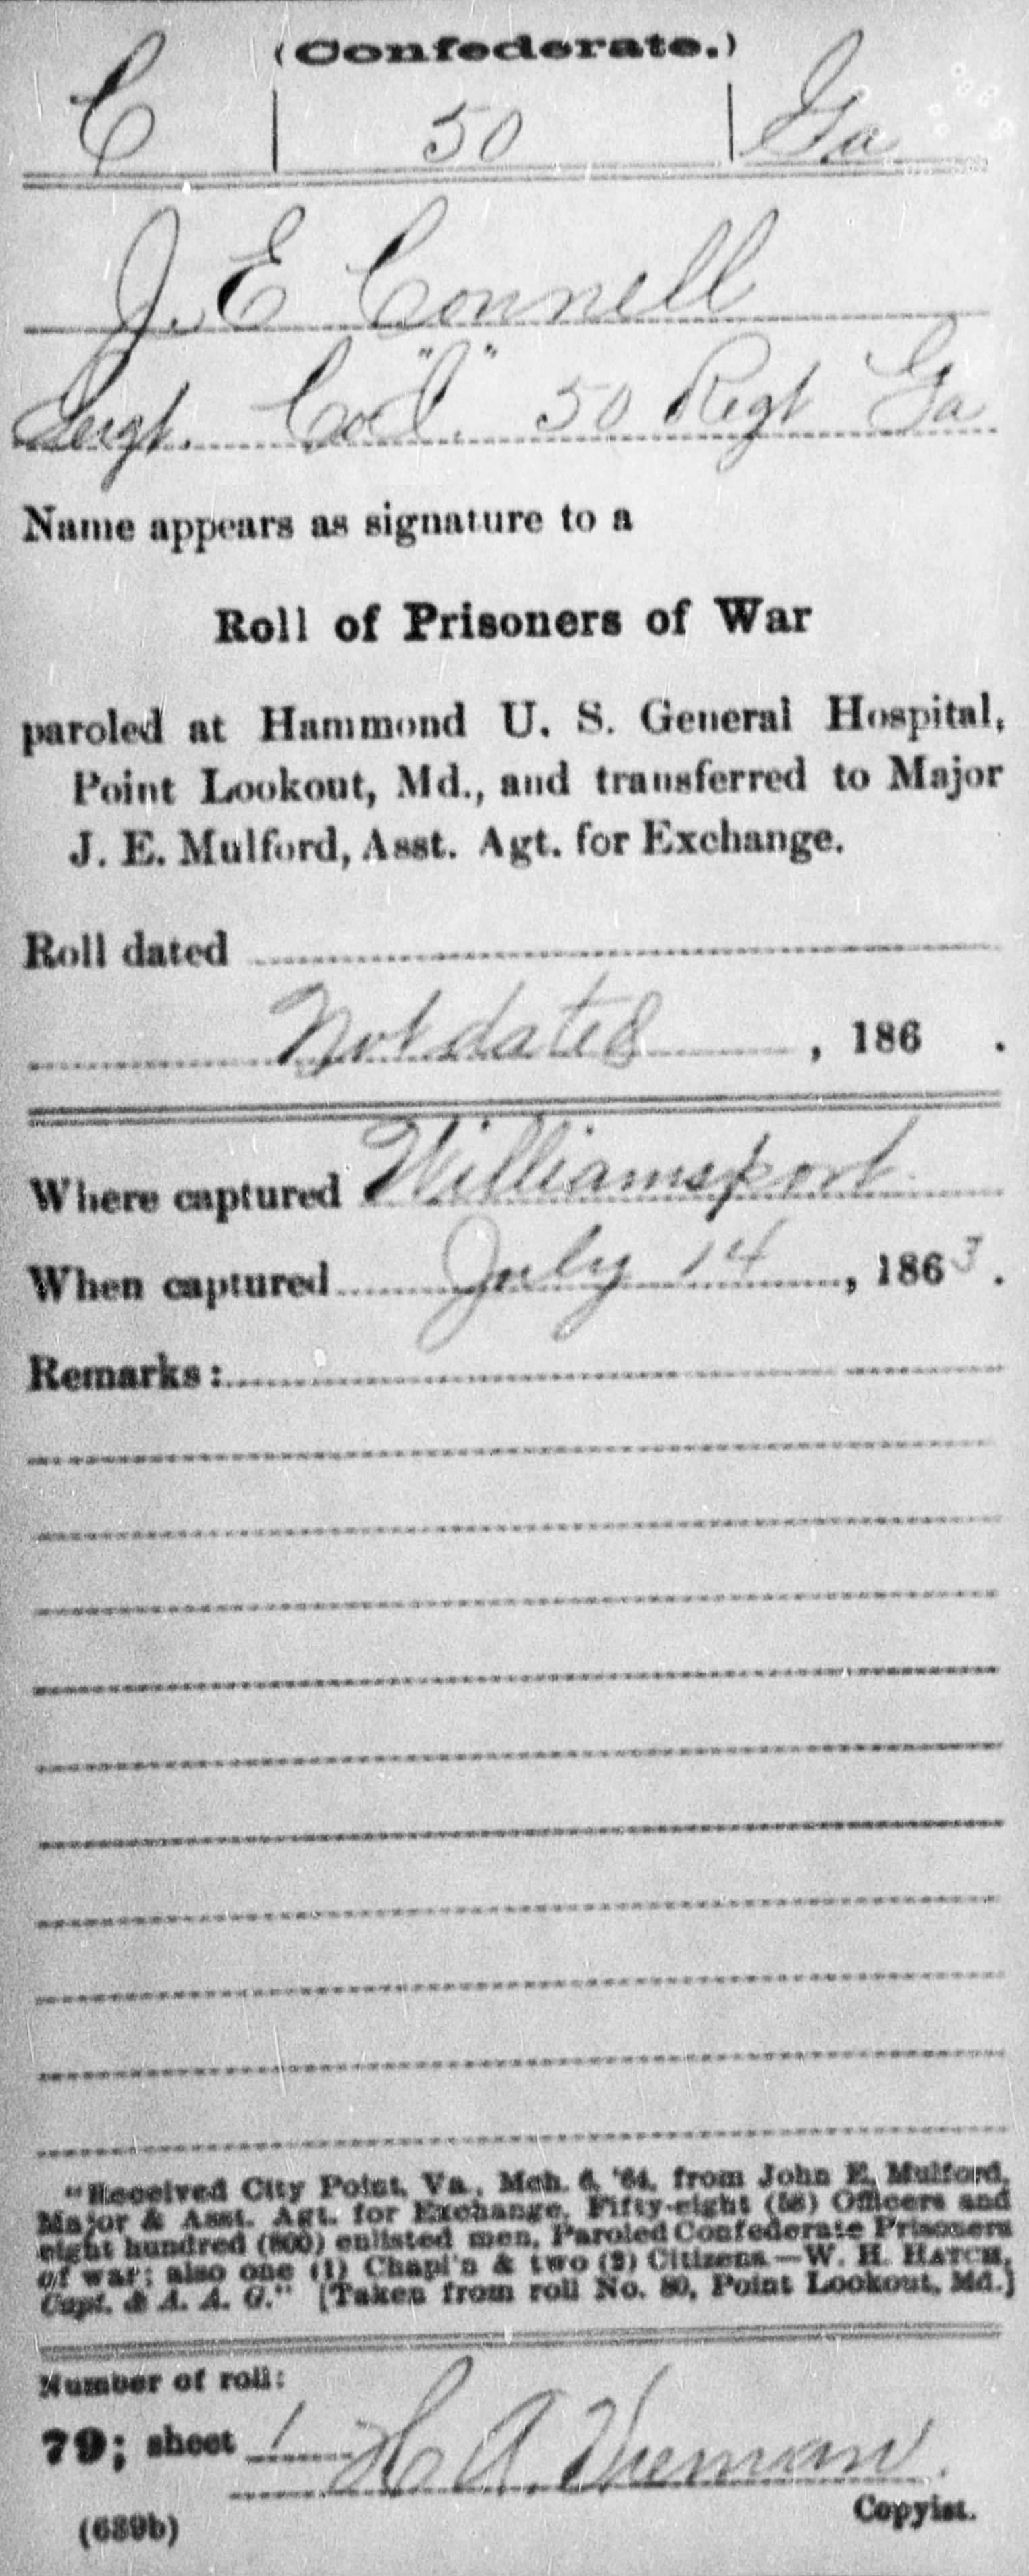 (Confederate.)
C | 50 | Ga
J. E Connell
Sergt. Co "I" 50 Regt Ga
Name appears as signature to a
Roll of Prisoners of War
paroled at Hammond U. S. General Hospital,
Point Lookout, Md., and transferred to Major
J. E. Mulford, Asst. Agt. for Exchange.
Roll dated
Not dated, 186 .
Where captured Williamsport
When captured July 14, 1863.
Remarks:
"Received City Point, Va., Mch. 6, '64, from John E. Mulford,
Major & Asst. Agt. for Exchange, Fifty-eight (58) Officers and
eight hundred (800) enlisted men, Paroled Confederate Prisoners
of war; also one (1) Chapl'n & two (2) Citizens.—W. H. HATCH,
Capt. & A. A. G." [Taken from roll No. 80, Point Lookout, Md.]
Number of roll:
79; sheet 1
H A.
Copyist.
(639b)